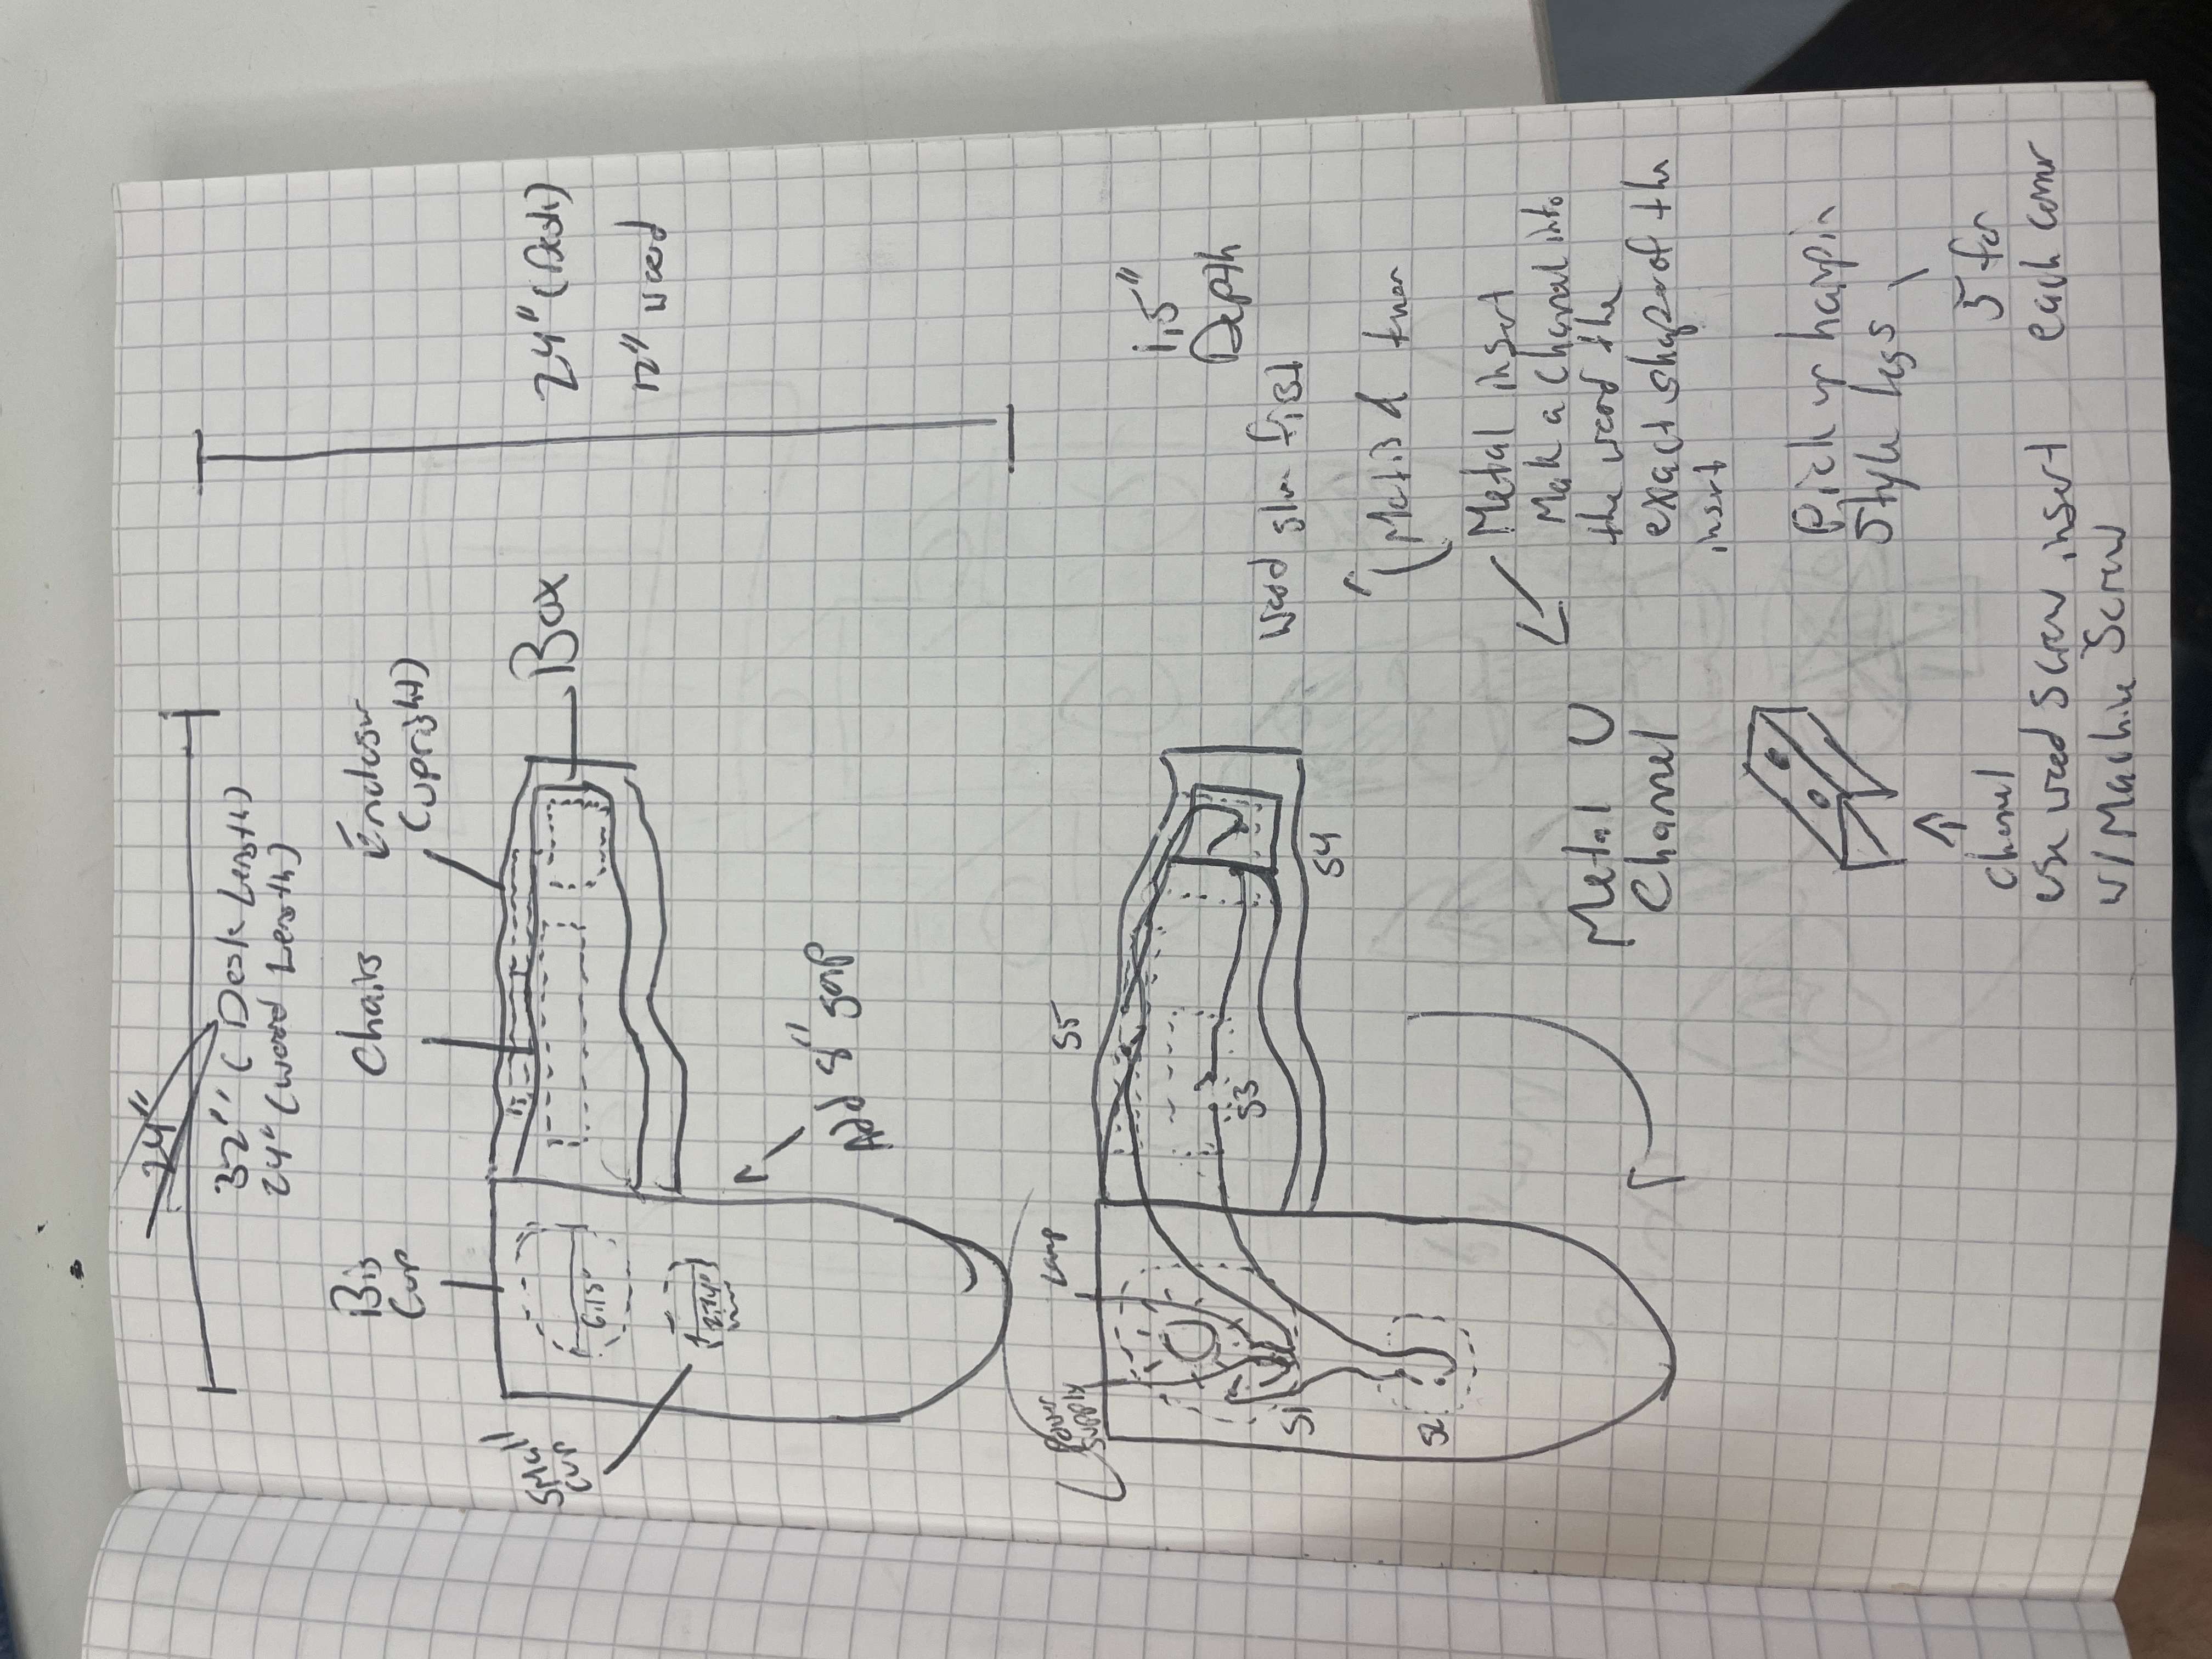 24"
32" (Desk Length)
24" (wood Length)
Big
Cup
Chairs
Enclosur
(upright)
Small
Cup
6.15"
2.74"
Box
24" (Desk)
12" wood
Add 8" gap
Power
Supply
Lamp
S5
S1
S3
S4
S2
1.5"
Depth
wood glue first
Metal insert
Make a channel into
the wood the
exact shape of the
insert
Metal U
Channel
Pick up hairpin
Style legs
5 for
each corner
Channel
use wood screw insert
w/ Machine Screw